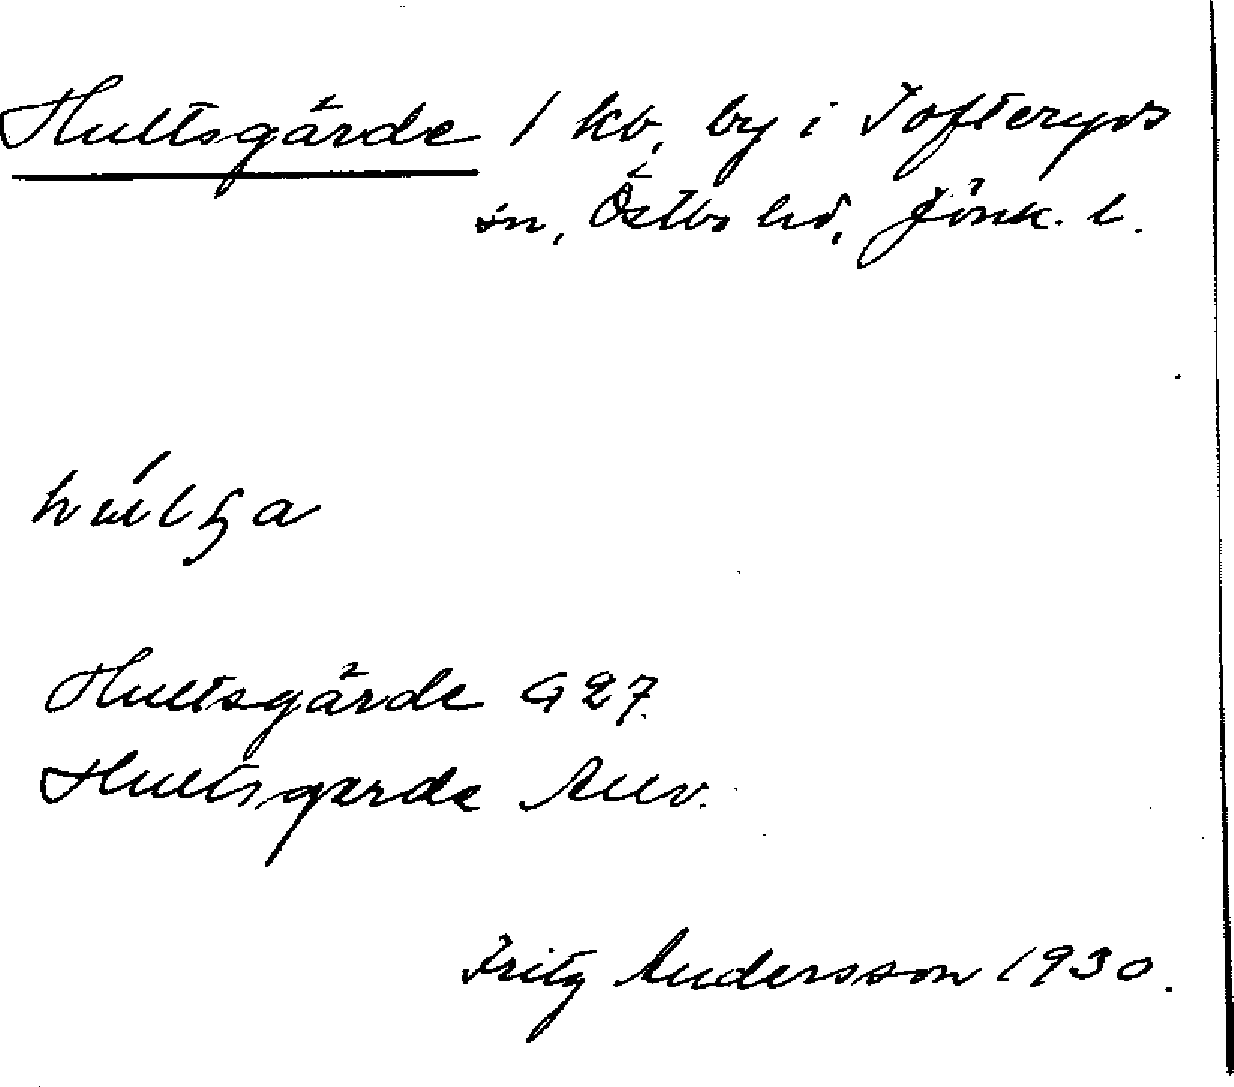 Hultsgärde 1 kv, by i Tofteryds
sn, Östbo hd, Jönk. l.
Hultsgärde G 27.
Hultsgärde Allv.
Fritz Andersson 1930.